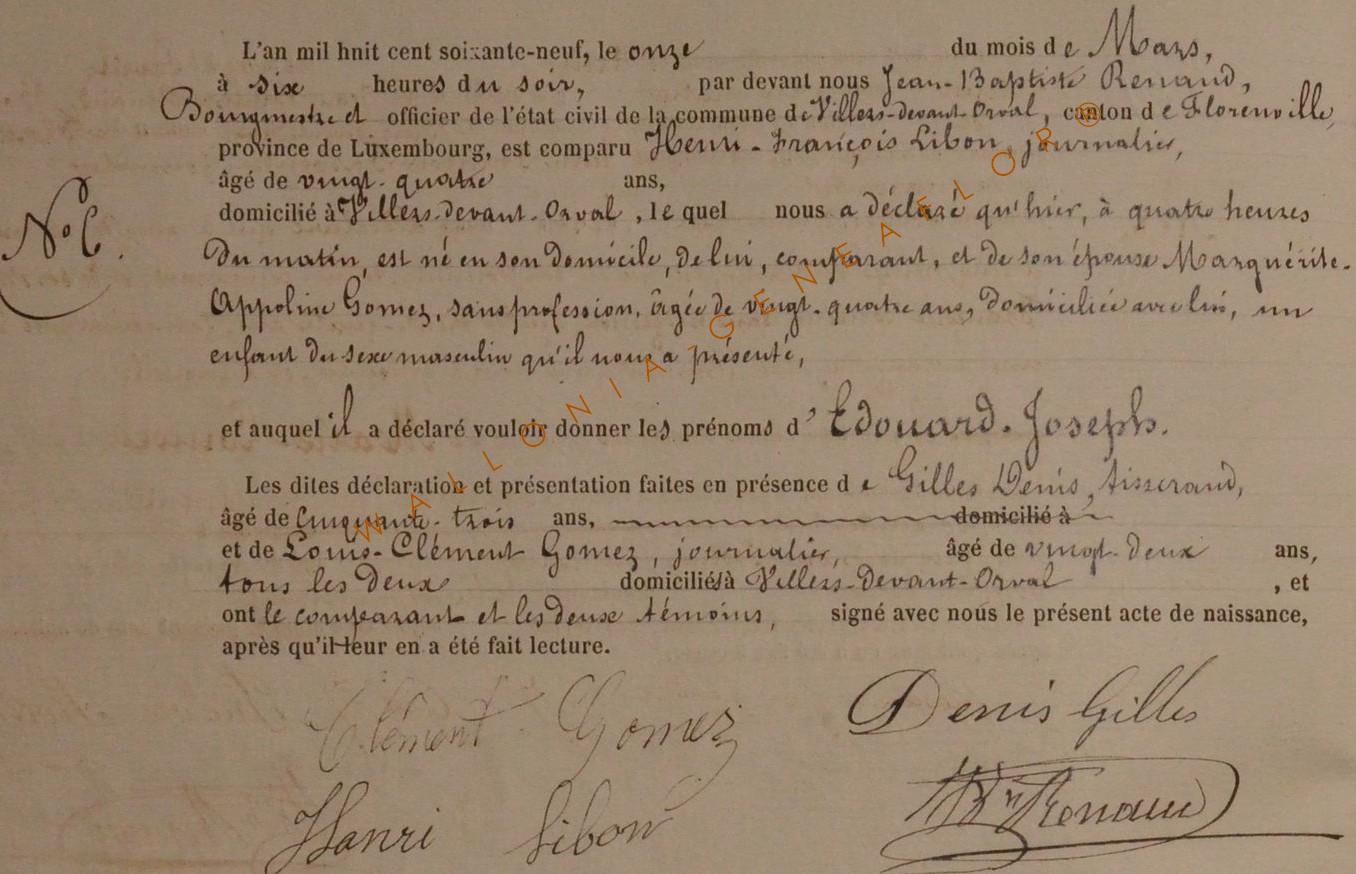 L'an mil huit cent soixante-neuf, le onze du mois de Mars,
à six heures du soir, par devant nous Jean-Baptiste Renaud,
Bourgmestre et officier de l'état civil de la commune de Villers-devant-Orval, canton de Florenville,
province de Luxembourg, est comparu Henri-François Libon, journalier,
âgé de vingt-quatre ans,
domicilié à Villers-devant-Orval, le quel nous a déclaré qu'hier, à quatre heures
N° 6.
du matin, est né en son domicile, de lui, comparant, et de son épouse Marguérite-
Appoline Gomez, sans profession, âgée de vingt-quatre ans, domiciliée avec lui, un
enfant du sexe masculin qu'il nous a présenté,
et auquel il a déclaré vouloir donner les prénoms d'Edouard-Joseph.
Les dites déclaration et présentation faites en présence de Gilles Denis, tisserand,
âgé de Cinquante-trois ans, domicilié à
et de Louis-Clément Gomez, journalier, âgé de vingt-deux ans,
tous les deux domiciliés à Villers-devant-Orval, et
ont le comparant et les deux témoins, signé avec nous le présent acte de naissance,
après qu'il leur en a été fait lecture.
Clément Gomez Denis Gilles
Hanri Libon JBte Renaud
WALLONIA-GENEAELOR®